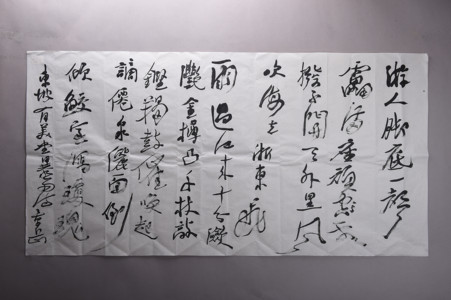 游人脚底一声
雷满座頑雲
撥不開天外黑風
吹海立浙東飛
雨過江来十分瀲
灩金樽凸千杖敲
鏗羯鼓催唤起
謫僊泉灑面倒
傾鮫室瀉瓊瑰
東坡有美堂暴雨詩